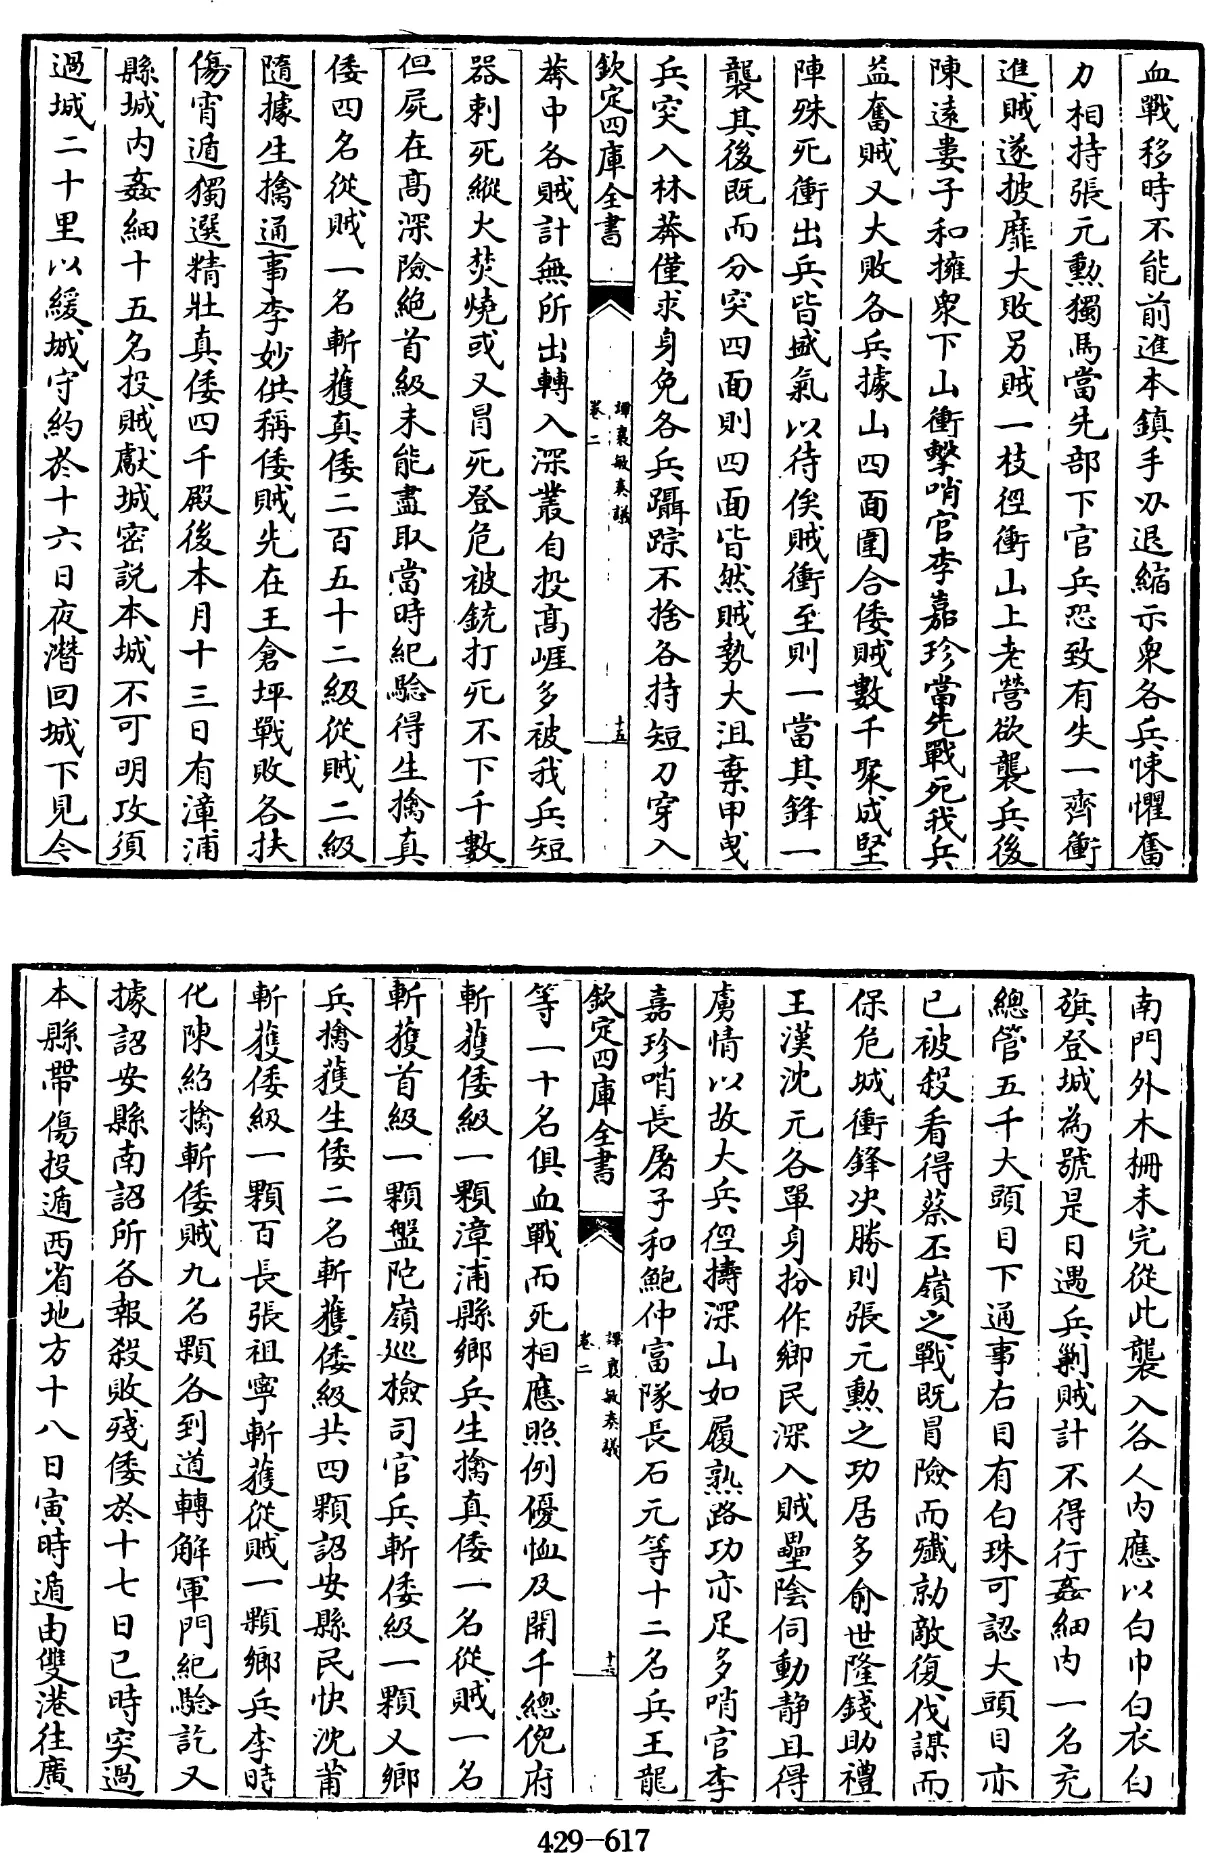 血戰移時不能前進本鎮手刃退縮示衆各兵悚懼奮
力相持張元勲獨馬當先部下官兵恐致有失一齊衝
進賊遂披靡大敗另賊一枝徑衝山上老營欲襲兵後
陳遠婁子和擁衆下山衝擊哨官李嘉珍當先戰死我兵
益奮賊又大敗各兵據山四面圍合倭賊數千聚成堅
陣殊死衝出兵皆盛氣以待俟賊衝至則一當其鋒一
襲其後既而分突四面則四面皆然賊勢大沮棄甲曳
兵突入林莽僅求身免各兵躡踪不捨各持短刀穿入
欽定四庫全書
譚襄敏奏議
卷二
十五
莽中各賊計無所出轉入深叢自投高崕多被我兵短
器刺死縱火焚燒或又冒死登危被銃打死不下千數
但屍在高深險絶首級未能盡取當時紀驗得生擒真
倭四名從賊一名斬獲真倭二百五十二級從賊二級
隨據生擒通事李妙供稱倭賊先在王倉坪戰敗各扶
傷宵遁獨選精壯真倭四千殿後本月十三日有漳浦
縣城内姦細十五名投賊獻城密説本城不可明攻須
過城二十里以緩城守約於十六日夜潛回城下見今
南門外木柵未完從此襲入各人内應以白巾白衣白
旗登城為號是日遇兵剿賊計不得行姦細内一名充
總管五千大頭目下通事右目有白珠可認大頭目亦
已被殺看得蔡丕嶺之戰既冒險而殲勍敵復伐謀而
保危城衝鋒决勝則張元勲之功居多俞世隆錢助禮
王漢沈元各單身扮作鄉民深入賊壘陰伺動静且得
虜情以故大兵徑擣深山如履熟路功亦足多哨官李
嘉珍哨長屠子和鮑仲富隊長石元等十二名兵王龍
欽定四庫全書
譚襄敏奏議
卷二
十六
等一十名俱血戰而死相應照例優恤及開千總倪府
斬獲倭級一顆漳浦縣鄉兵生擒真倭一名從賊一名
斬獲首級一顆盤陀嶺巡檢司官兵斬倭級一顆又鄉
兵擒獲生倭二名斬獲倭級共四顆詔安縣民快沈莆
斬獲倭級一顆百長張祖寧斬獲從賊一顆鄉兵李時
化陳紹擒斬倭賊九名顆各到道轉解軍門紀驗訖又
據詔安縣南詔所各報殺敗殘倭於十七日巳時突過
本縣帶傷投遁西省地方十八日寅時遁由雙港往廣
429-617